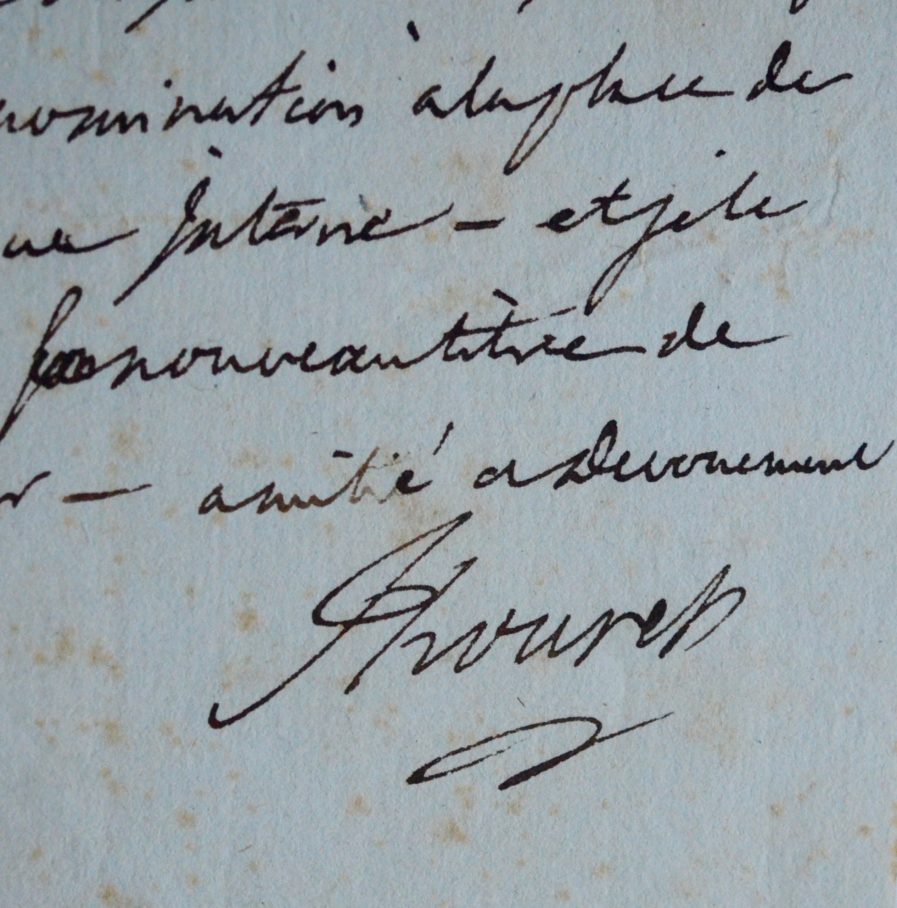 nomination à la place de
Interne — et je le
nouveau titre de
— amitié et Devouement
Thouret